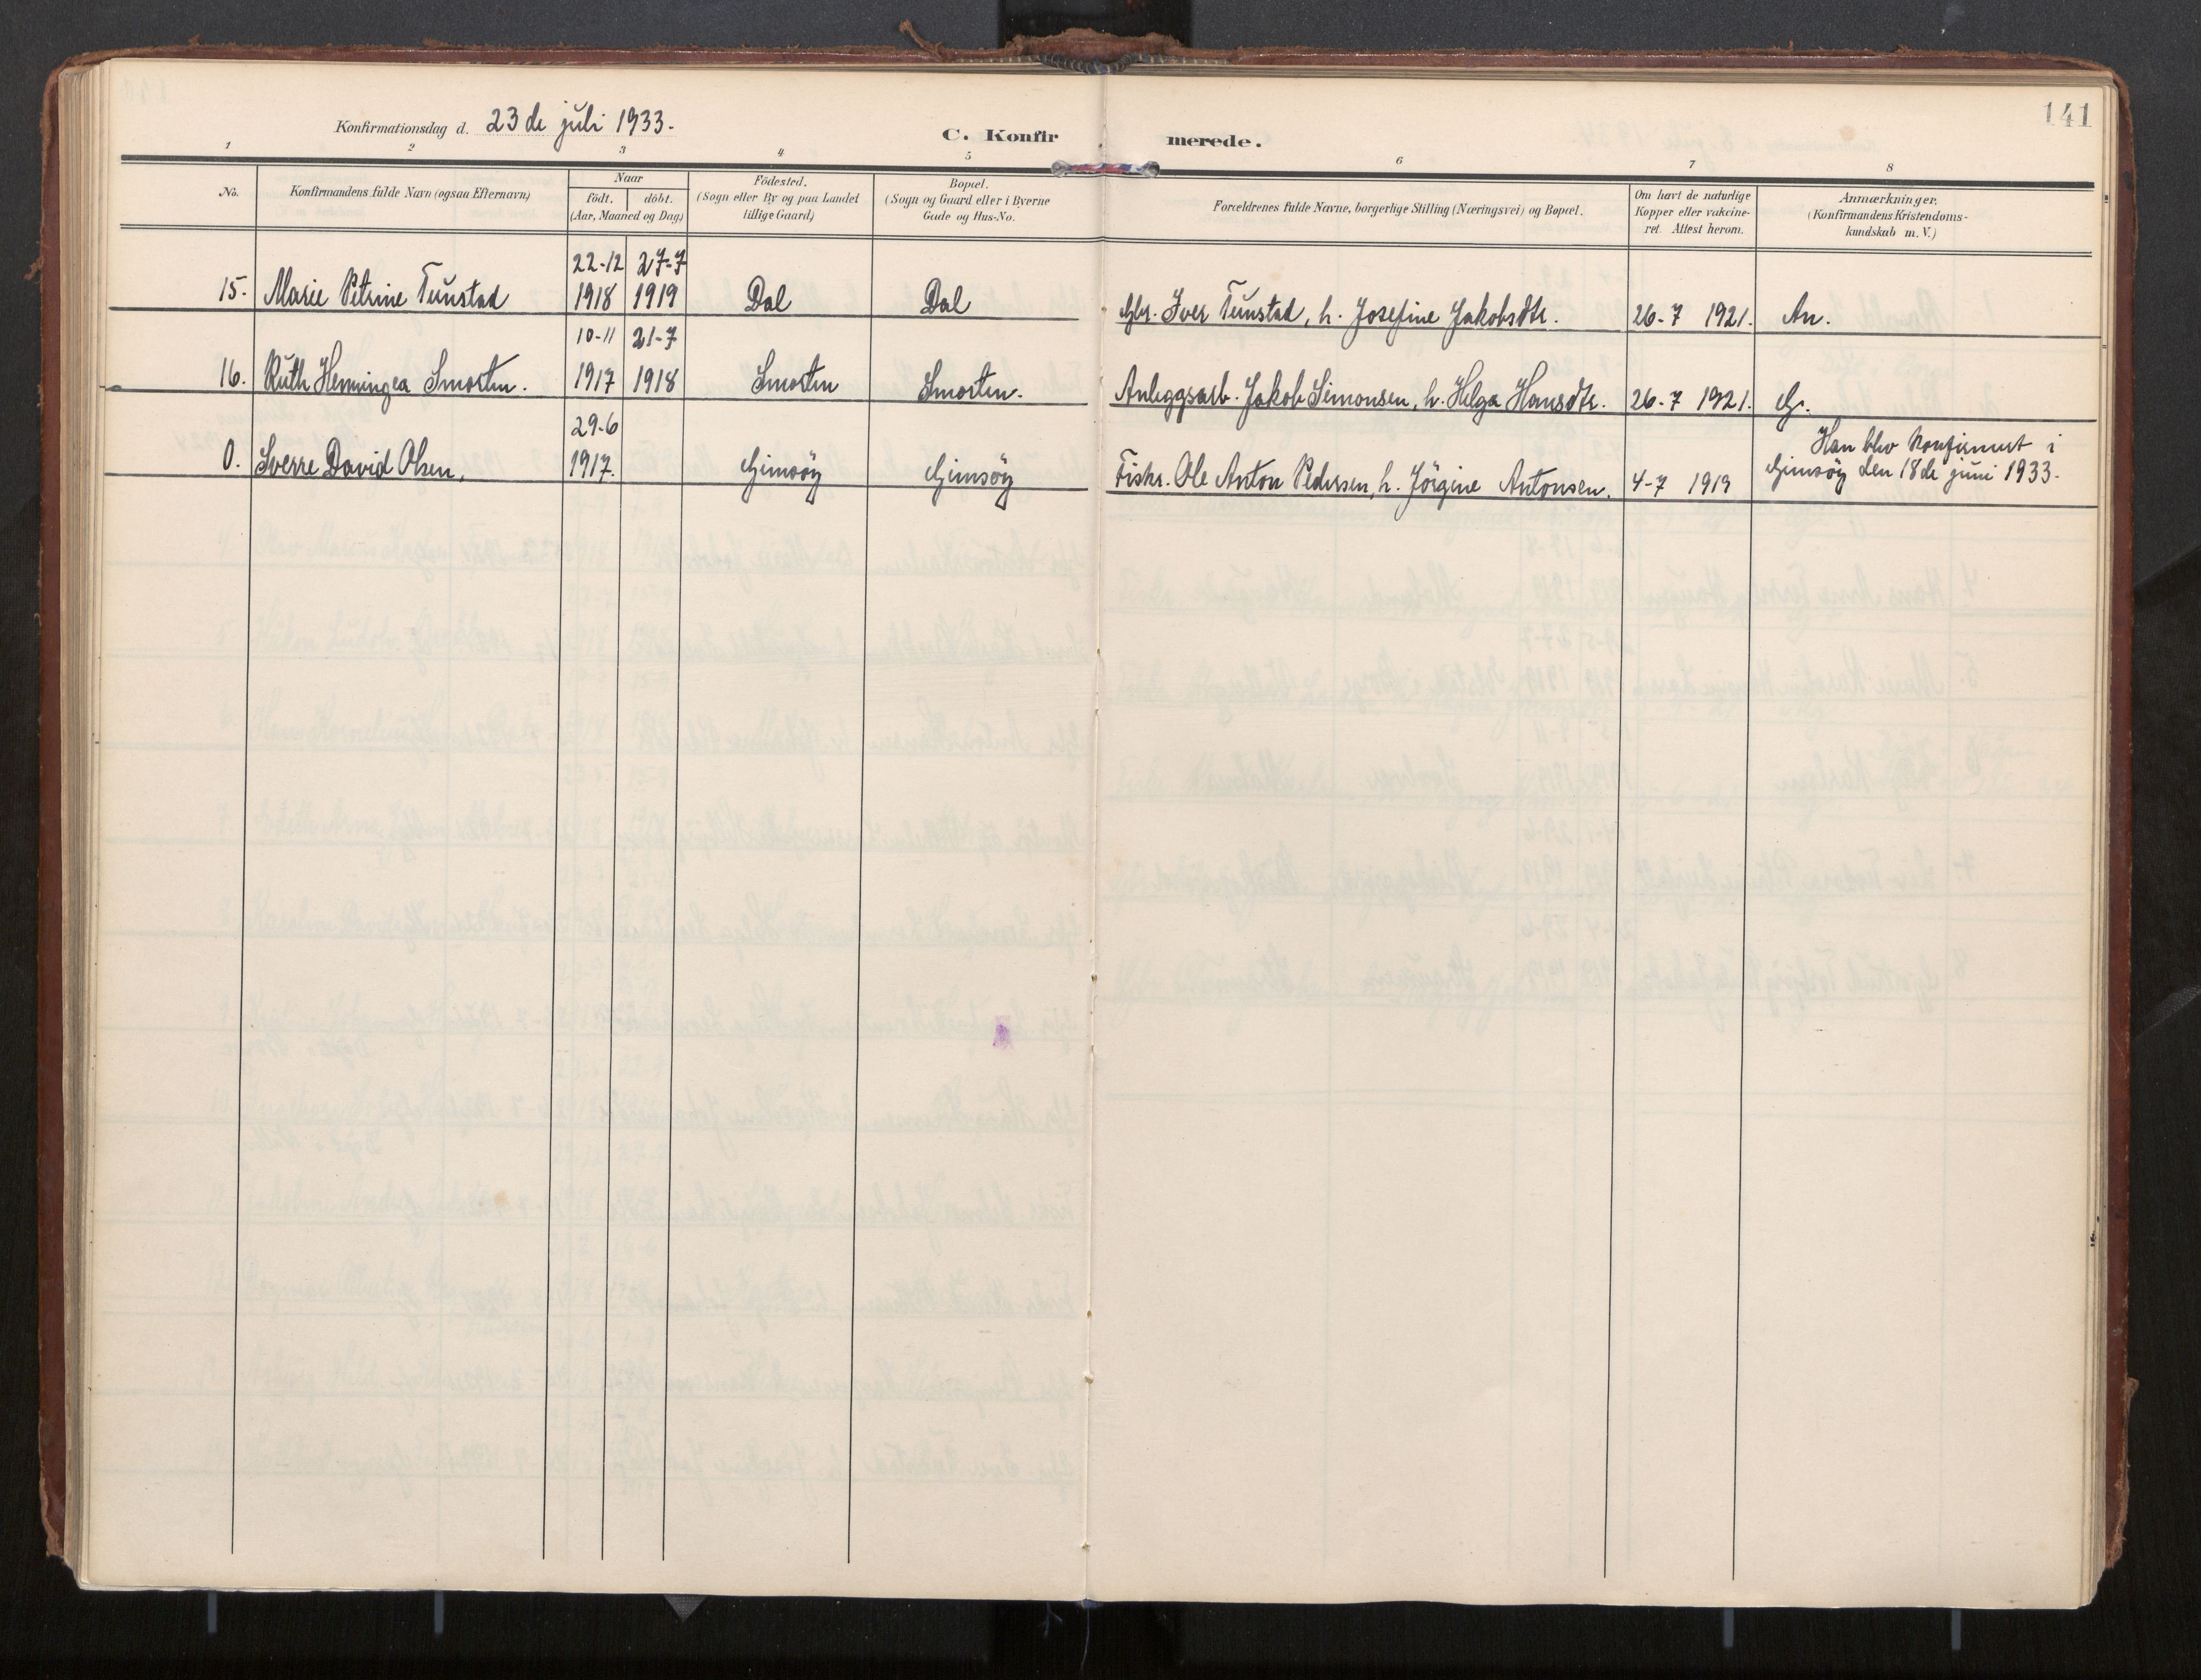 141
Konfirmationsdag d. 23 de juli 1933.
C. Konfirmerede.
1 2 3 4 5 6 7 8
No.
Konfirmandens fulde Navn (ogsaa Efternavn)
Naar
født. døbt.
(Aar, Maaned og Dag)
Fødested.
(Sogn eller By og paa Landet
tillige Gaard)
Bopæl.
(Sogn og Gaard eller i Byerne
Gade og Hus-No.
Forældrenes fulde Navne, borgerlige Stilling (Næringsvei) og Bopæl.
Om havt de naturlige
Kopper eller vakcine-
ret. Attest herom.
Anmærkninger.
(Konfirmandens Kristendoms-
kundskab m. V.)
22-12 27-7
15. Marie Petrine Tunstad 1918 1919 Dal Dal Gbr. Iver Tunstad, h. Josefine Jakobsdtr. 26-7 1921. An.
10-11 21-7
16. Ruth Henningea Smorten. 1917 1918 Smorten Smorten. Anleggsarb. Jakob Simonsen, h. Helga Hansdtr. 26-7 1921. G.
29-6
0. Sverre David Olsen, 1917. Gimsöy Gimsöy Fiskr. Ole Anton Pedersen, h. Jörgine Antonsen. 4-7 1919 Han blev konfirmert i
Gimsöy den 18de juni 1933.